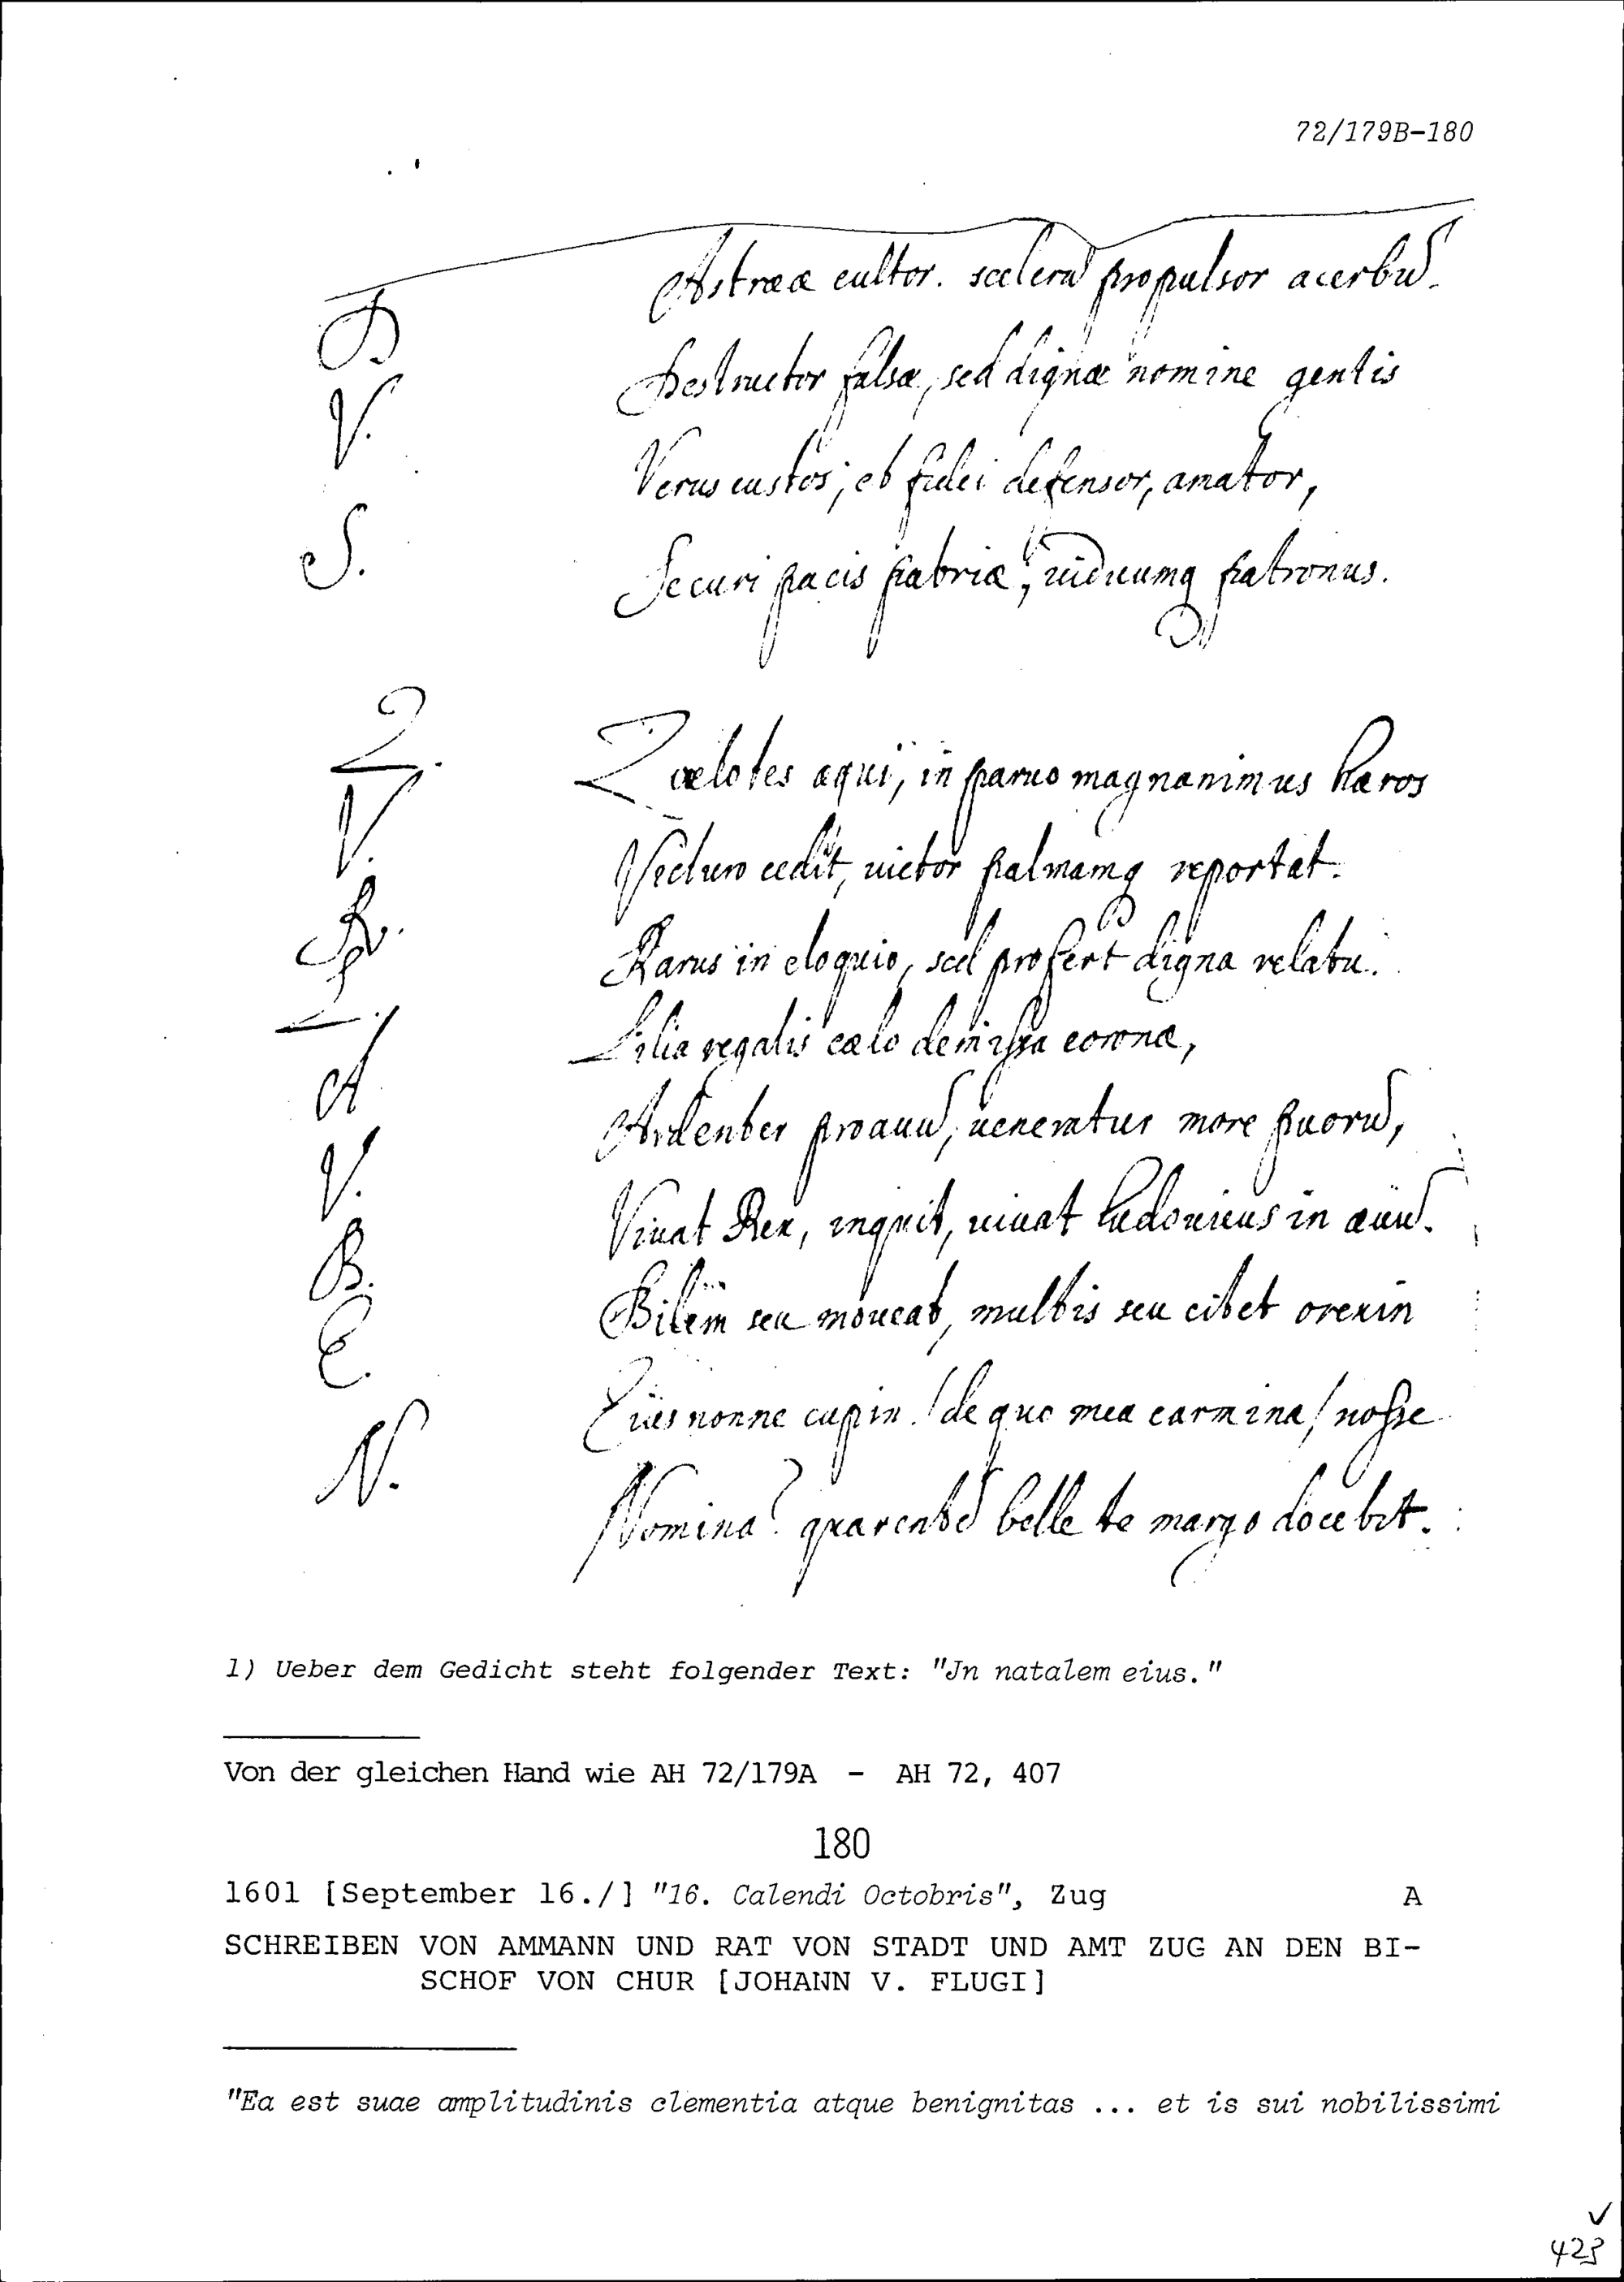 72/179B-180
Astrææ cultor. scelerū propulsor acerbus.
D Destructor falsæ, sed dignæ nomine gentis
V. Verus custos, et fidei defensor, amator,
S. Securi pacis patriæ, uiduumq patronus.
Z. Zælotes æqui, in paruo magnanimus hæros
V. cedit, uictor palmamq reportat.
R. Rarus in eloquio, sed profert digna relatu.
L. Lilia regalis cælo demissa coronæ,
A Ardenter proauū, ueneratur more suorū,
V. Viuat Rex, inquit, uiuat Ludouicus in æuū.
B. Bilem seu moueat, multis seu citet orexin
E. Eius nonne cupis /de quo mea carmina/ nosse
N. Nomina? quærentē belle te margo docebit.
1) Ueber dem Gedicht steht folgender Text: "Jn natalem eius."
Von der gleichen Hand wie AH 72/179A - AH 72, 407
180
1601 [September 16./] "16. Calendi Octobris", Zug A
SCHREIBEN VON AMMANN UND RAT VON STADT UND AMT ZUG AN DEN BI-
SCHOF VON CHUR [JOHANN V. FLUGI]
"Ea est suae amplitudinis clementia atque benignitas ... et is sui nobilissimi
423